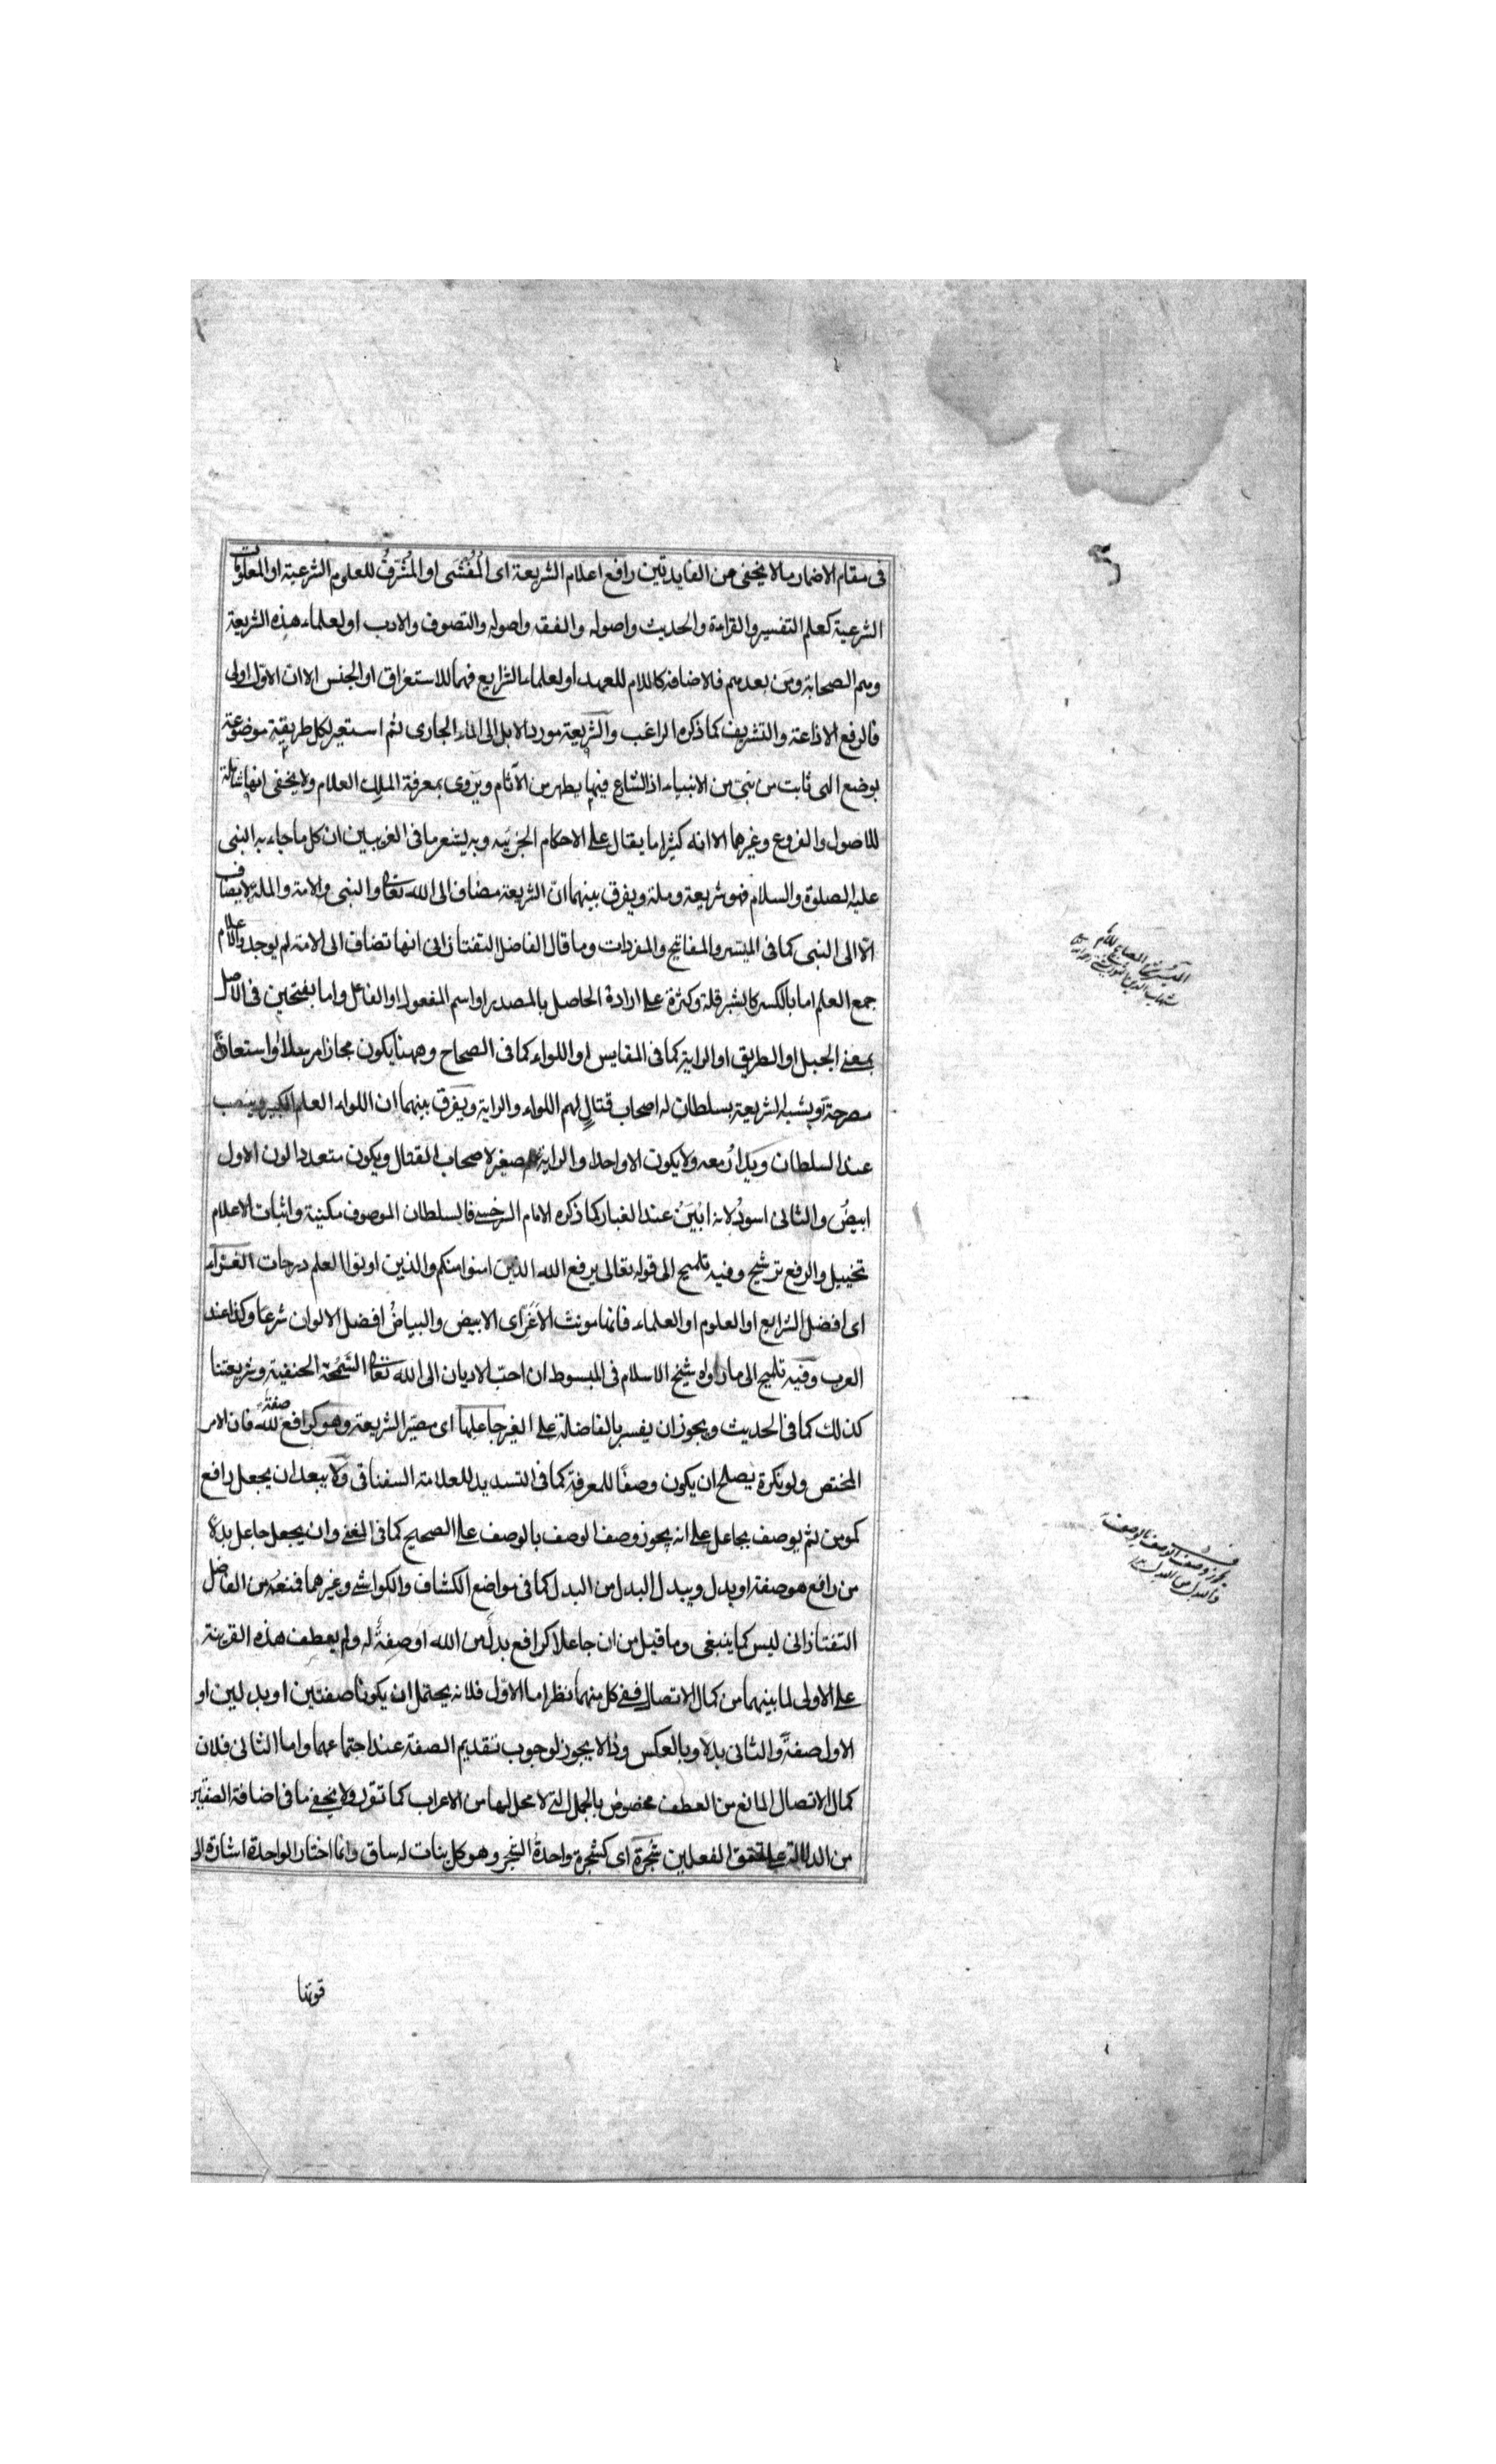 في مقام الاضمار مالا يخفى من الفايدتين رافع اعلام الشريعة اى المُفْشَى او المُشَرَّفُ للعلوم الشرعية او المعلومات
الشرعية كعلم التفسير والقراءة والحديث واصوله والفقه واصوله والتصوف والادب او لعلماء هذه الشريعة
وهم الصحابة ومَن بعدهم فالاضافة كاللام للعهد او لعلماء الشرايع فهما للاستغراق او الجنس الا ان الاوّل اولى
فالرفع الاذاعة والتشريف كما ذكره الراغب والشريعة مورد الابل الى الماء الجارى ثم استعير لكل طريقة موضوعة
بوضع الهى ثابت من نبىّ من الانبياء اذ الشارع فيها يطهر من الآثام ويَروى بمعرفة الملِك العلام ولا يخفى انها شاملة
للاصول والفروع وغيرها الا انه كثيرا ما يقال على الاحكام الجزئيه وبه يشعر ما فى الغريبين ان كل ما جاء به النبى
عليه الصلوة والسلام فهو شريعة وملة ويفرق بينهما انّ الشريعة مضاف الى الله تعالى والنبى والامة والملة لا يضاف
الّا الى النبى كما فى الميسر والمفاتيح والمفردات وما قال الفاضل التفتازانى انها تضاف الى الامة لم يوجد والاعلام
جمع العلم اما بالكسر كالشبر قلة وكثرة على ارادة الحاصل بالمصدر او اسم المفعول او الفاعل واما بفتحين فى الاصل
بمعنى الجبل او الطريق او الراية كما فى المقايس او اللواء كما فى الصحاح وههنا يكون مجازا مرسلا او استعارة
مصرحة او يشبه الشريعة بسلطان له اصحاب قتالٍ لهم اللواء والراية ويفرق بينهما ان اللواء العلم الكبير وينصب
عند السلطان ويدارُ معه ولا يكون الا واحدا والراية صغيرة لاصحاب القتال ويكون متعددا لون الاول
ابيضُ والثانى اسودُ لانه ابْيَنُ عند الغبار كما ذكره الامام السرخسى فالسلطان الموصوف مكنية واثبات الاعلام
تخييل والرفع ترشيح وفيه تلميح الى قوله تعالى يرفع الله الذين امنوا منكم والذين اوتوا العلم درجات الغَرَّاء
اى افضل الشرايع او العلوم او العلماء فانها مونث الاغَرّ اى الابيض والبياضُ افضل الالوان شرعا وكذا عند
العرب وفيه تلميح الى ما رواه شيخ الاسلام فى المبسوط ان احبّ الاديان الى الله تعالى السَّمْحَة الحنفية وشريعتنا
كذلك كما فى الحديث ويجوز ان يفسر بالفاضلة على الغير جاعلها اى مصيّر الشريعة وهو كرافع صفةُ لله فان الامر
المختص ولو نكرة يصلح ان يكون وصفًا للمعرفة كما فى التسديد للعلامة السغناقى ولا يبعد ان يجعل رافع
كمومن ثم يوصف بجاعل على انه يجوز وصف الوصف بالوصف على الصحيح كما فى المغنى وان يجعل جاعل بدلا
من رافع هو صفة او بدل ويبدل البدل من البدل كما فى مواضع الكشاف والكواشى وغيرهما فمنعُه من الفاضل
التفتازانى ليس كما ينبغى وما قيل من ان جاعلا كرافع بدلٌ من الله او صفةٌ له ولم يعطف هذه القرينة
على الاولى لما بينهما من كمال الاتصال ففى كل منهما نظر اما الاوّل فلانه يحتمل ان يكونا صفتين او بدلين او
الاول صفةً والثانى بدلا وبالعكس وذا لا يجوز لوجوب تقديم الصفة عند اجتماعهما واما الثانى فلان
كمال الاتصال المانع من العطف مخصوصٌ بالجمل التى لا محل لها من الاعراب كما تقرر ولا يخفى ما فى اضافة الصفتين
من الدلالة على تحقق الفعلين شجرَة اى كشجرة واحدةُ الشجر وهو كل نبات له ساق وانما اختار الواحدة اشارة الى
يجوز وصف الوصف بالوصف
والبدل من البدل
قوتنا